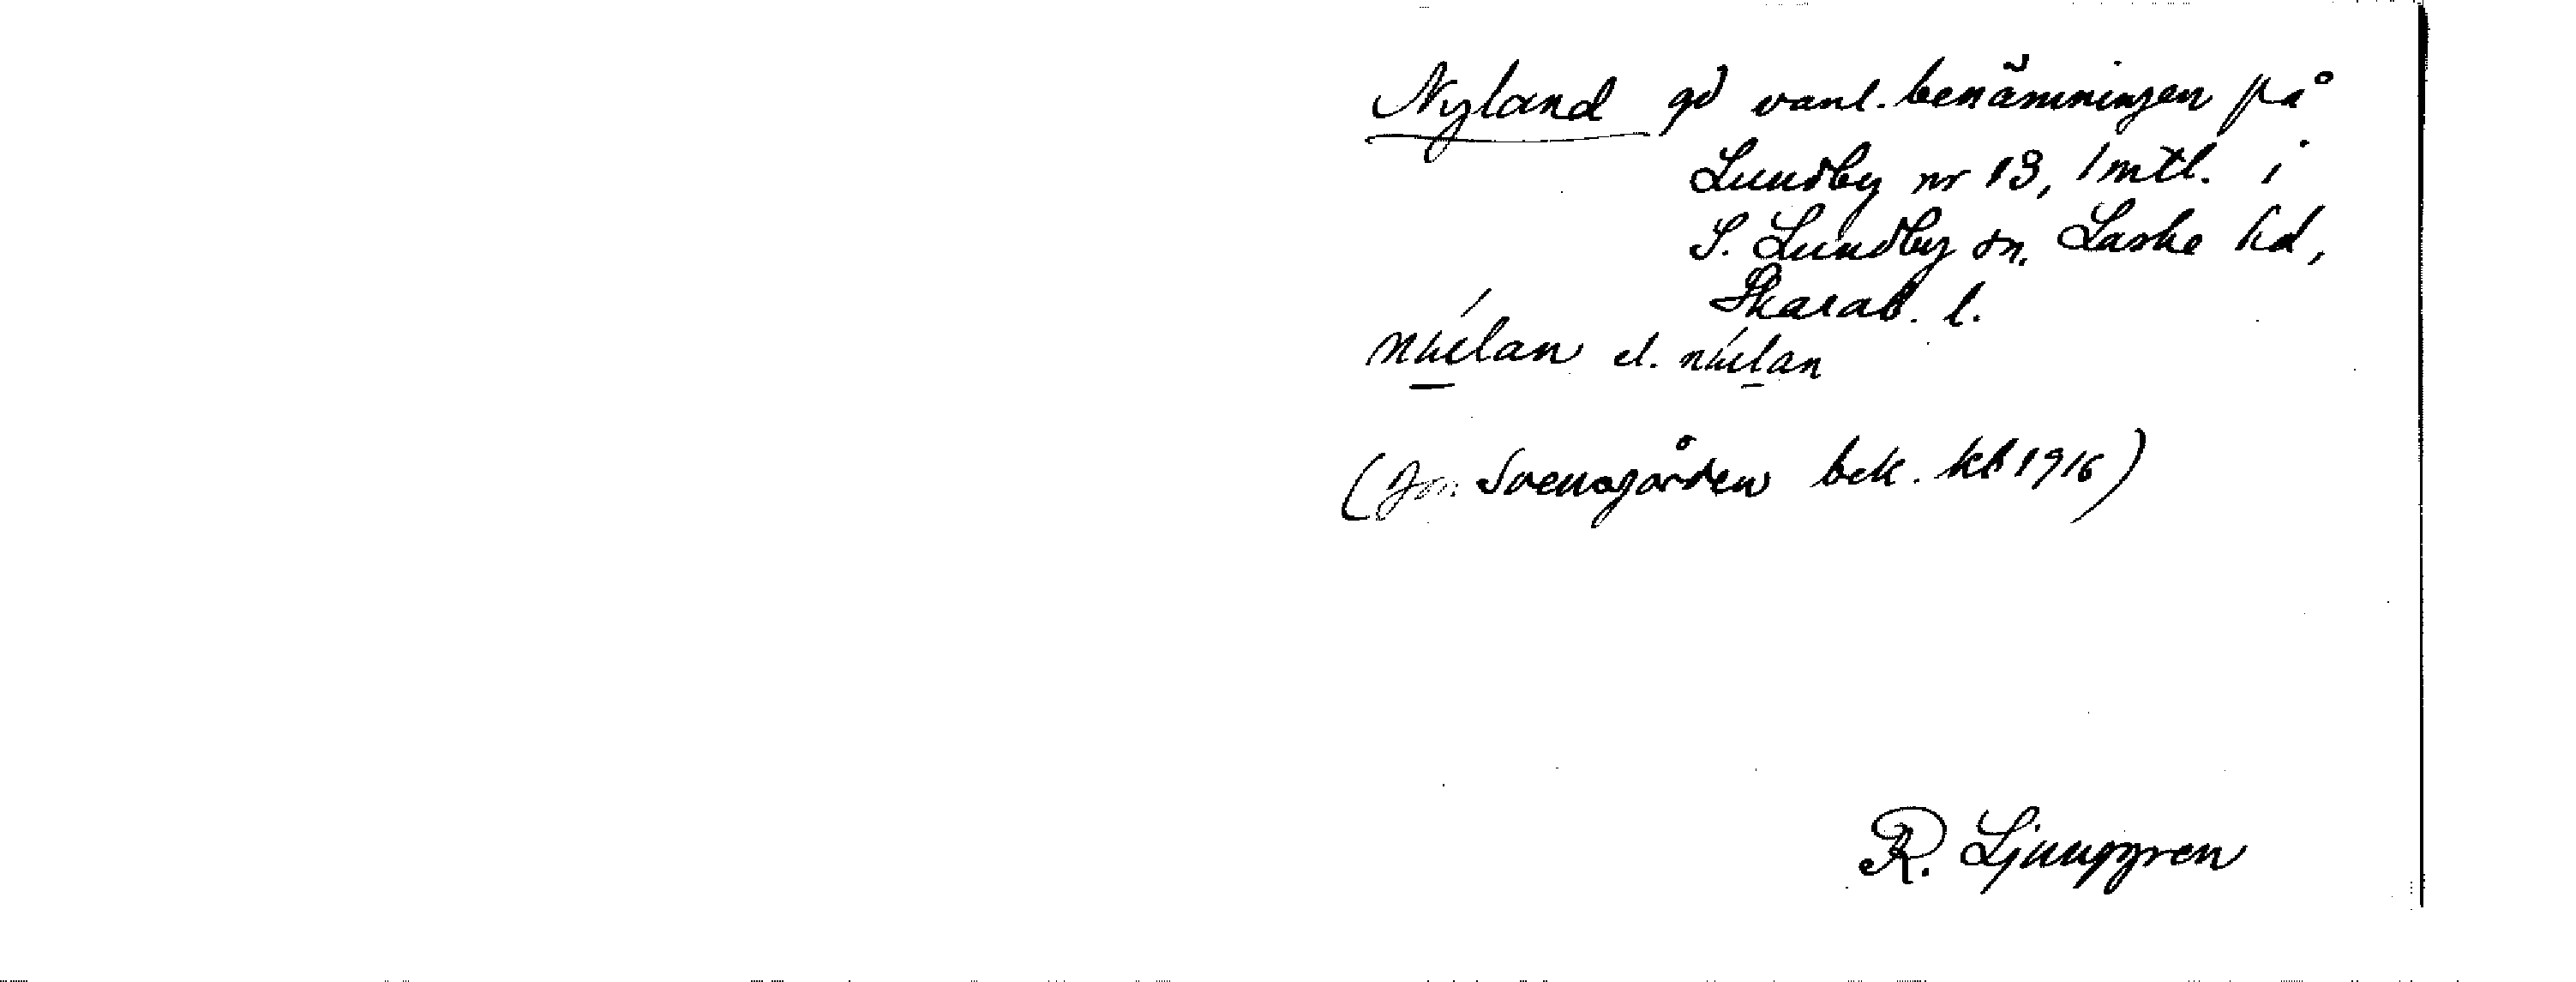 Nyland gd vanl. benämningen på
Lundby nr 13, 1 mtl. i
S. Lundby sn. Laske hd,
Skarab. l.
núelan el. núelan
(Jon Svensgården bek. kl 1916)
R. Ljunggren